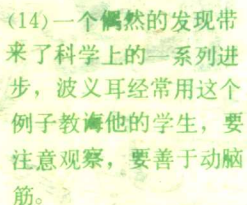 (14)一个偶然的发现带
来了科学上的一系列进
步，波义耳经常用这个
例子教诲他的学生，要
注意观察，要善于动脑
筋。